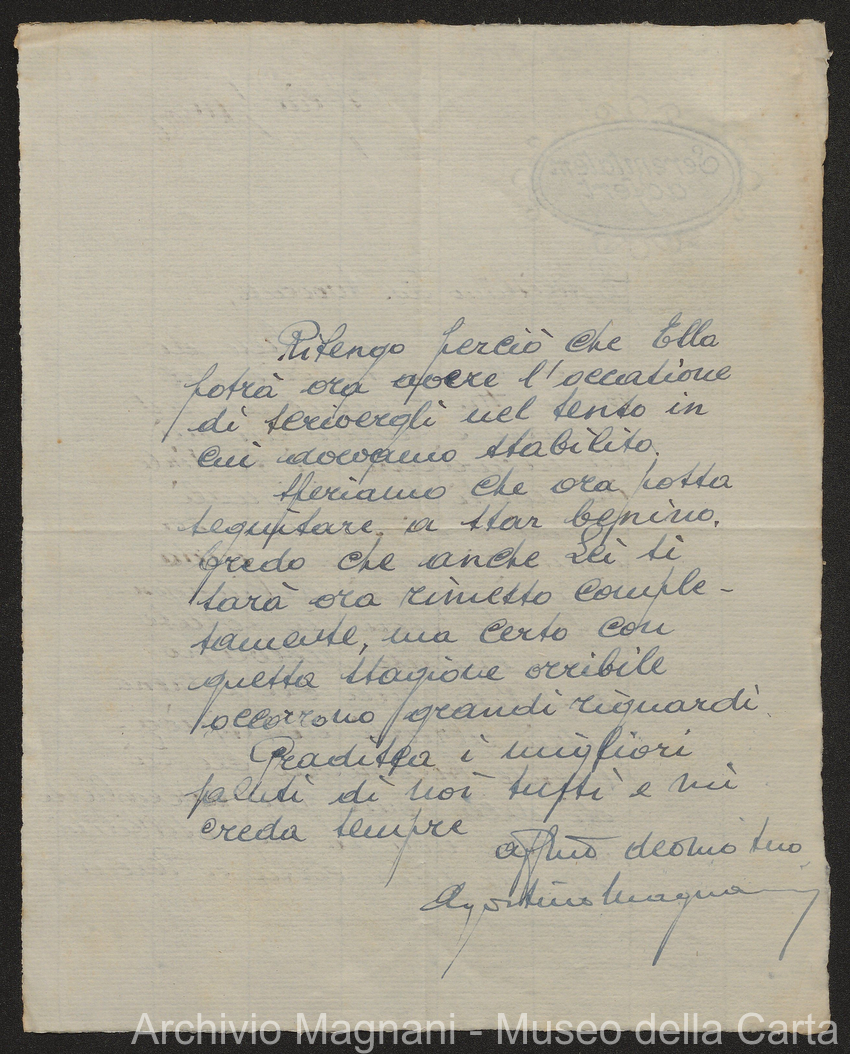 Ritengo perciò che Ella
potrà ora avere l'occasione
di scrivergli nel senso in
cui avevamo stabilito.
Speriamo che ora possa
seguitare a star benino.
Credo che anche Lei si
sarà ora rimesso comple-
tamente, ma certo con
questa stagione orribile
occorrono grandi riguardi.
Gradisca i migliori
saluti di noi tutti e mi
creda sempre
affmo devmo suo
Agostino Magnani
Archivio Magnani - Museo della Carta